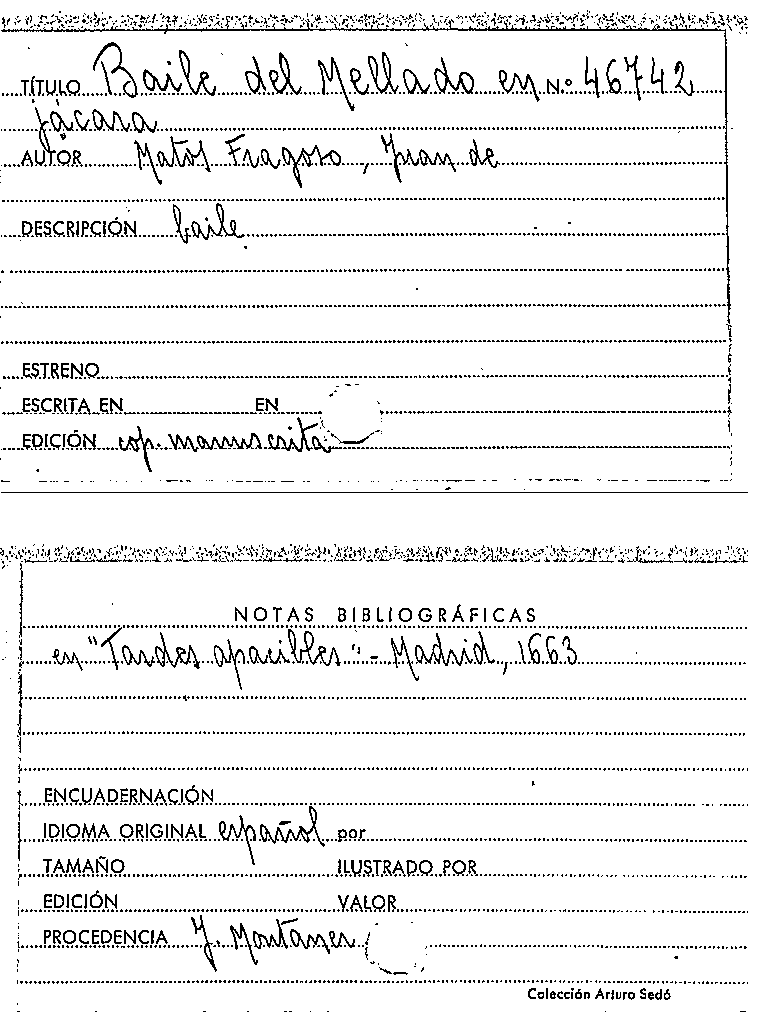 TÍTULO Baile del Mellado en N.º 46742
jácara
AUTOR Matos Fragoso, Juan de
DESCRIPCIÓN baile
ESTRENO
ESCRITA EN EN
EDICIÓN cop. manuscrita
NOTAS BIBLIOGRÁFICAS
en "Tardes apacibles" - Madrid, 1663
ENCUADERNACIÓN
IDIOMA ORIGINAL español por
TAMAÑO ILUSTRADO POR
EDICIÓN VALOR
PROCEDENCIA J. Montaner
Colección Arturo Sedó